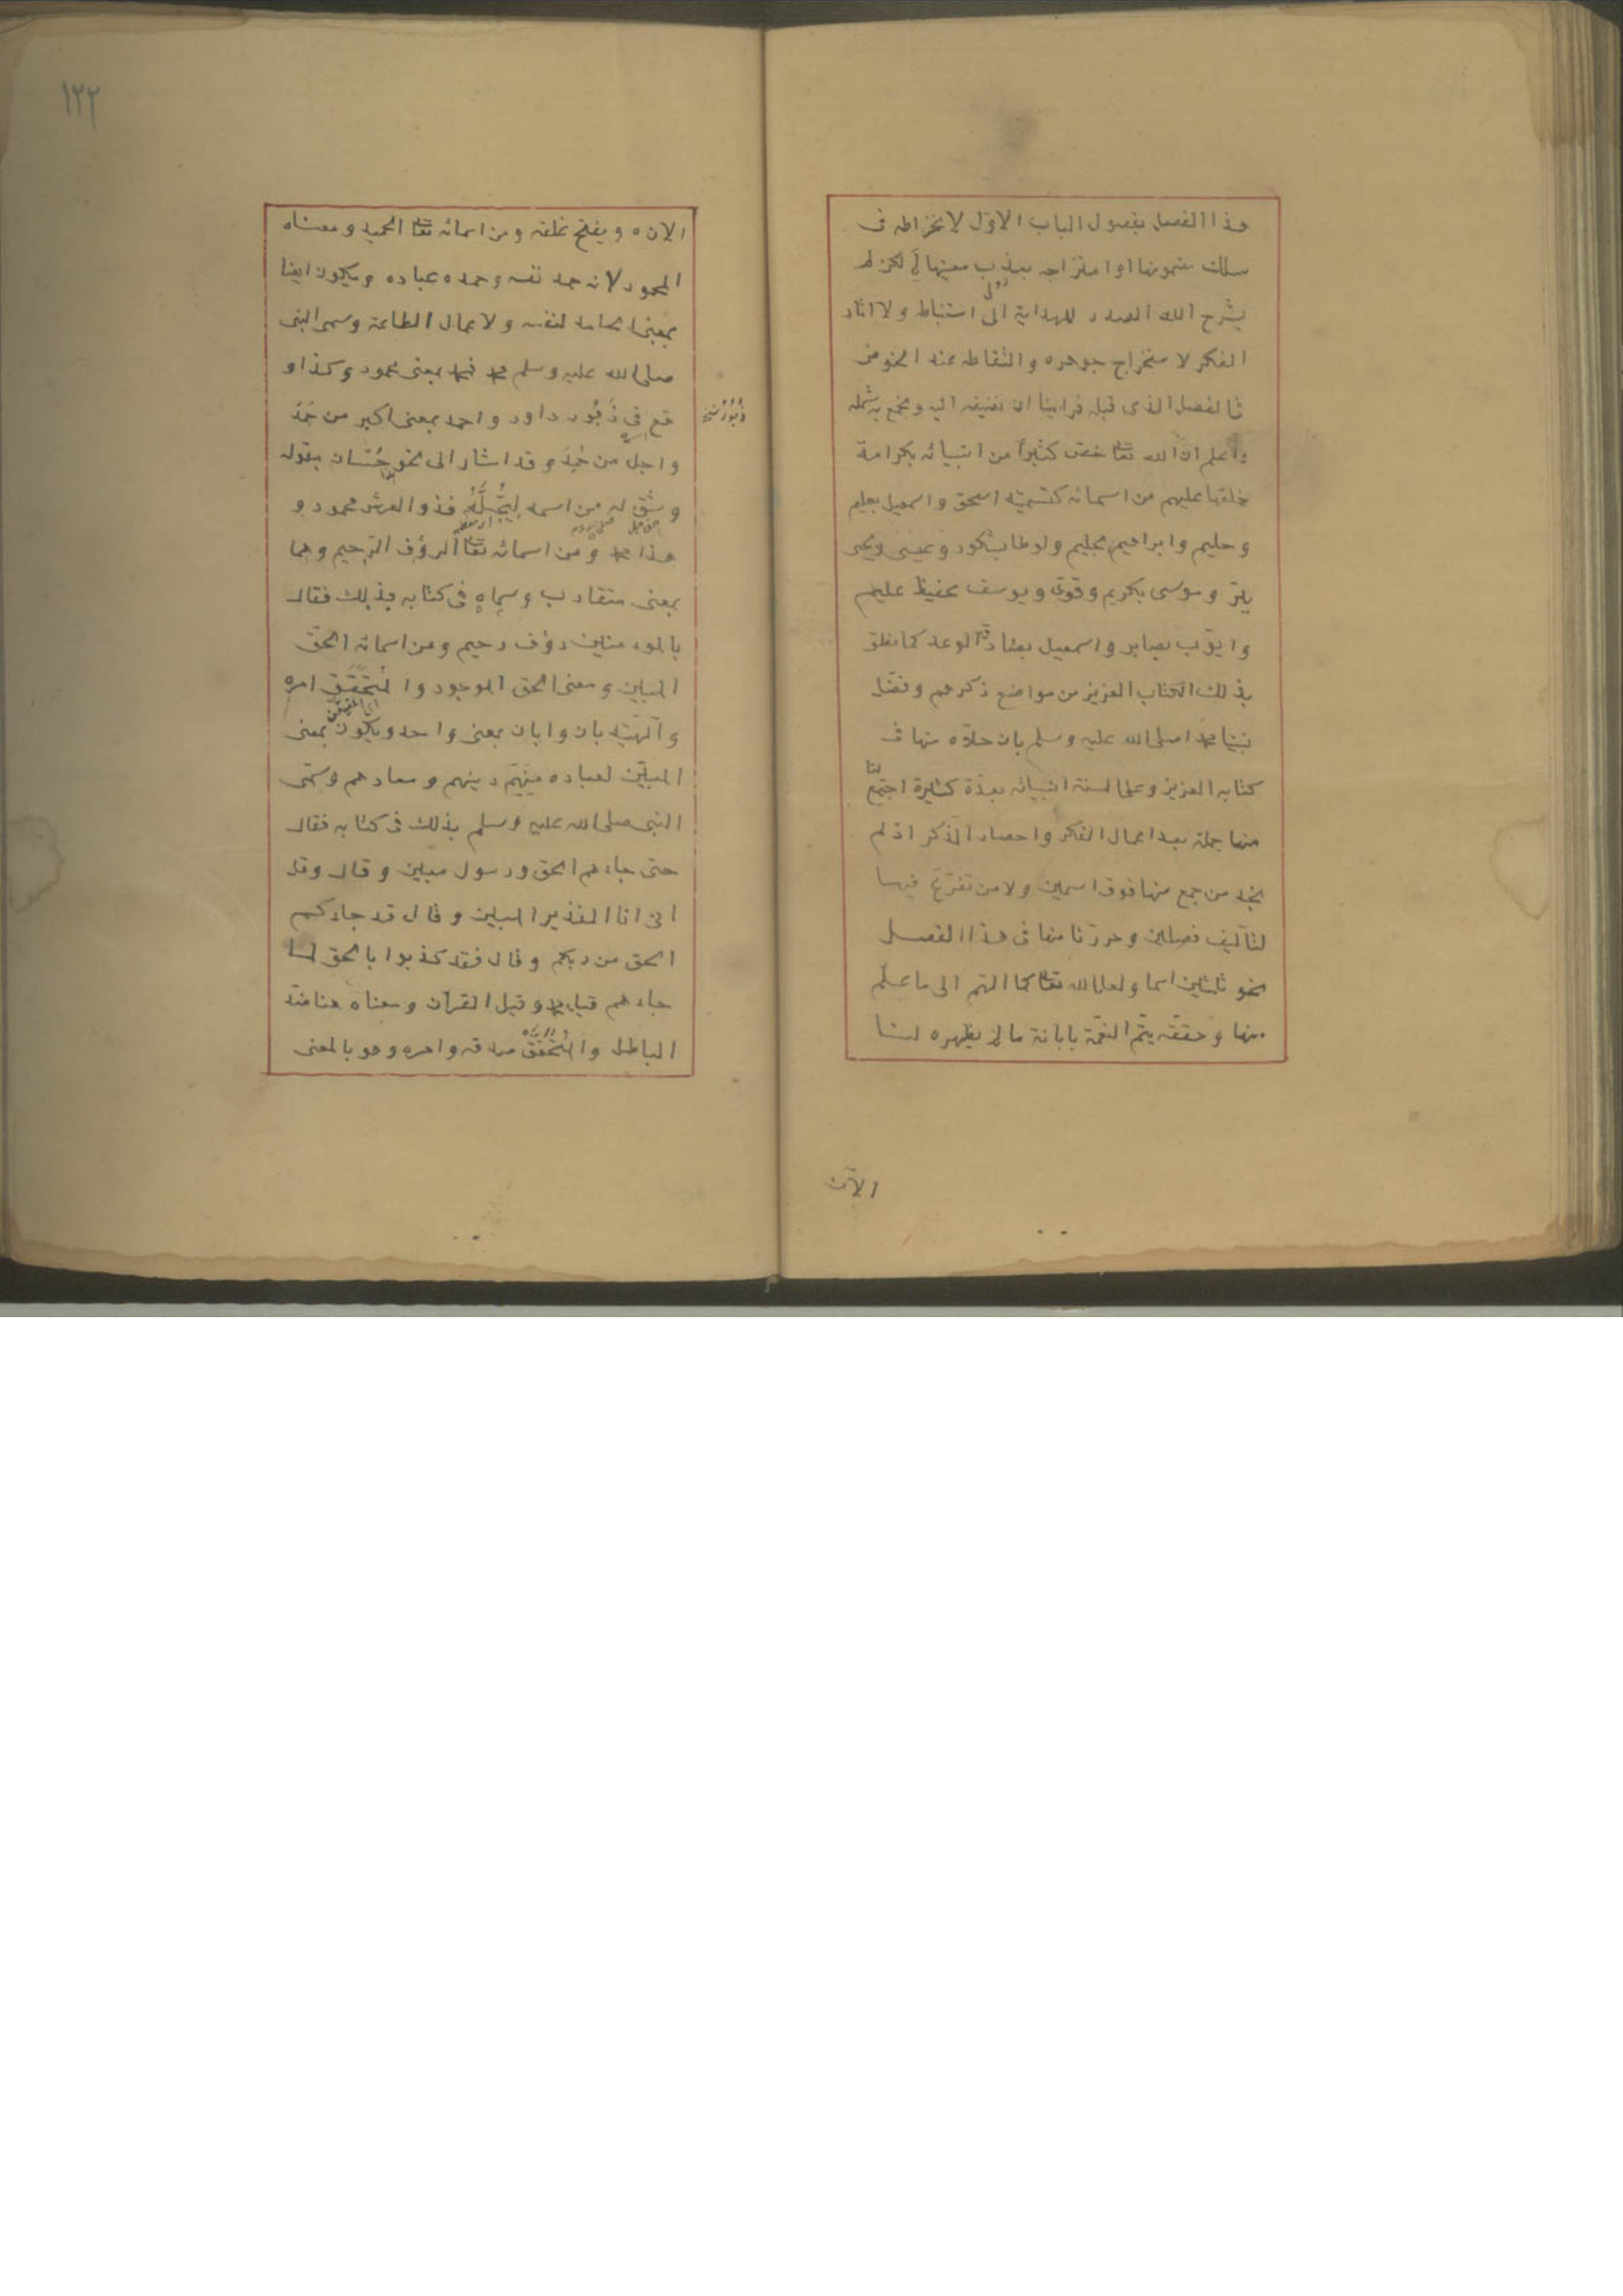 هذا الفصل بفصول الباب الاول لانخراطه فى
سلك مضمونها وامتزاجه بعذب معينها لكن لم
يشرح الله الصدر للهداية الى استنباطه ولا انار
الفكر لاستخراج جوهره والتقاطه عند الخوض
فى الفصل الذى قبله فراينا ان نضيفه اليه ونجمع به شمله
واعلم ان الله تعا خص كثيرا من انبيائه بكرامة
خلعها عليهم من اسمائه كتسمية اسحق واسمعيل بعليم
وحليم وابراهيم بحليم ونوحا بشكور وعيسى ويحيى
ببر وموسى بكريم وقوى ويوسف بحفيظ عليم
وايوب بصابر واسمعيل بصادق الوعد كما نطق
بذلك الكتاب العزيز من مواضع ذكرهم وفضل
نبينا محمدا صلى الله عليه وسلم بان حلاه منها فى
كتابه العزيز وعلى السنة انبيائه بعدة كثيرة اجتمع لنا
منها جملة بعد اعمال الفكر واحضار الذكر اذ لم
نجد من جمع منها فوق اسمين ولا من تفرغ فيها
لتأليف فصلين وحررنا منها فى هذا الفصل
نحو ثلثين اسما ولعل الله تعا كما الهم الى ما علم
منها وحققه يتم النعمة بابانة ما لم يظهره لنا
الآن
١٢٢
الان ويفتح غلقه ومن اسمائه تعا الحميد ومعناه
المحمود لانه حمد نفسه وحمده عباده ويكون ايضا
بمعنى الحامد لنفسه ولاعمال الطاعة وسمى النبى
صلى الله عليه وسلم محمد فمحمد بمعنى محمود وكذا و
قع فى زبور داود واحمد بمعنى اكبر من حمد
واجل من حمد وقد اشار الى نحو حسان بقوله
وشق له من اسمه ليجله فذو العرش محمود و
هذا محمد ومن اسمائه تعا الرؤف الرحيم وهما
بمعنى متقارب وسماه فى كتابه بذلك فقال
بالمؤمنين رؤف رحيم ومن اسمائه الحق
المبين ومعنى الحق الموجود والمتحقق امره
والهيته بان وابان بمعنى واحد ويكون بمعنى
المبين لعباده دينهم ومعادهم وسمى
النبى صلى الله عليه وسلم بذلك فى كتابه فقال
حتى جاءهم الحق ورسول مبين وقال وقل
انى انا النذير المبين وقال قد جاءكم
الحق من ربكم وقال فقد كذبوا بالحق لما
جاءهم قيل محمد وقيل القرآن ومعناه هنا ضد
الباطل والمتحقق صدقه وامره وهو بالمعنى